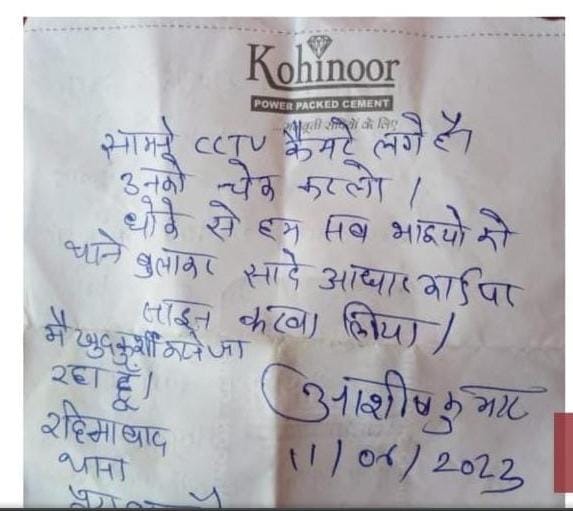 Kohinoor
POWER PACKED CEMENT
के लिए
सामने CCTV कैमरे लगे हैं
उनको चेक करलो /
धोके से हम सब भाइयो को
थाने बुलाकर सादे आधार कार्ड पर
साइन करवा लिया /
मै खुदकुशी करने जा
रहा हूँ /
रहिमाबाद
थाना
आशीष कुमार
11/06/2023